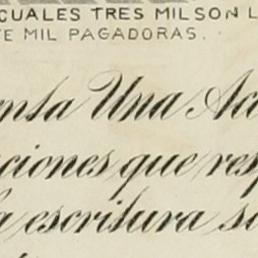 CUALES TRES MIL SON L
TE MIL PAGADORAS.
enta Una Ac
ciones que resp
la escritura so